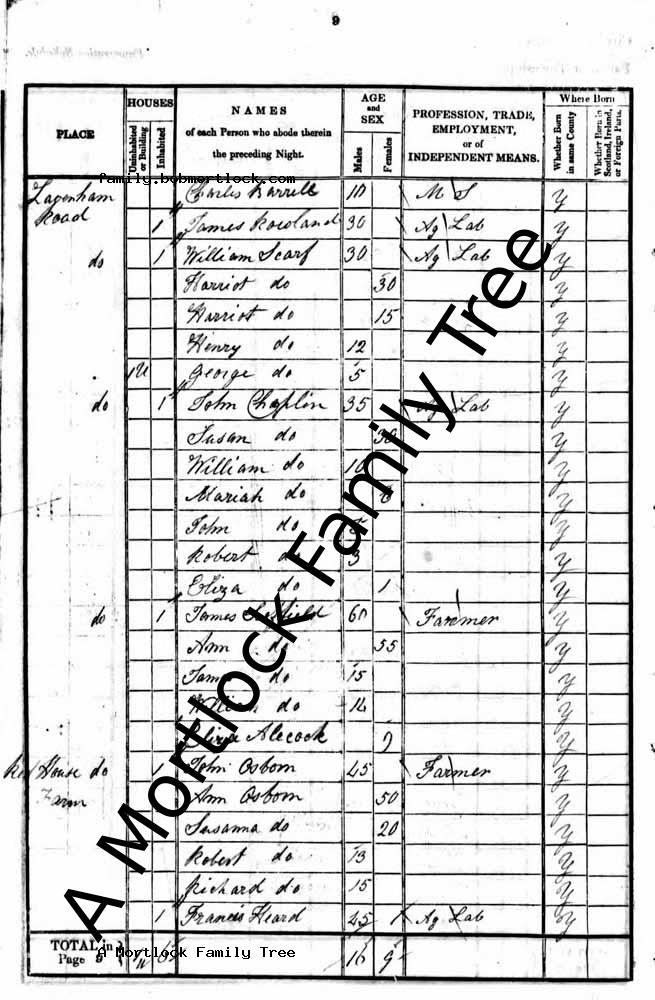 9
PLACE
HOUSES
Uninhabited or Building
Inhabited
NAMES
of each Person who abode therein
the preceding Night.
AGE
and
SEX
Males
Females
PROFESSION, TRADE,
EMPLOYMENT,
or of
INDEPENDENT MEANS.
Where Born
Whether Born in same County
Whether Born in Scotland, Ireland, or Foreign Parts.
family.bobmortlock.com
Lavenham Charles Barrell 10 M S y
Road 1 James Rowland 30 Ag Lab y
do 1 William Scarf 30 Ag Lab y
Harriot do 30 y
Harriot do 15 y
Henry do 12 y
1 U George do 5 y
do 1 John Chaplin 35 Ag Lab y
Susan do 30 y
William do 10 y
Mariah do y
John do y
Robert do 3 y
Eliza do 1 y
do 1 James 60 Farmer y
Ann do 55 y
do 15 y
do 14 y
Eliza Alecock y
Red House do 1 John Osborn 45 Farmer y
Farm Ann Osborn 50 y
Susanna do 20 y
Robert do 13 y
Richard do 15 y
1 Francis Heard 45 Ag Lab y
TOTAL in
Page 9 16 9
A Mortlock Family Tree
A Mortlock Family Tree